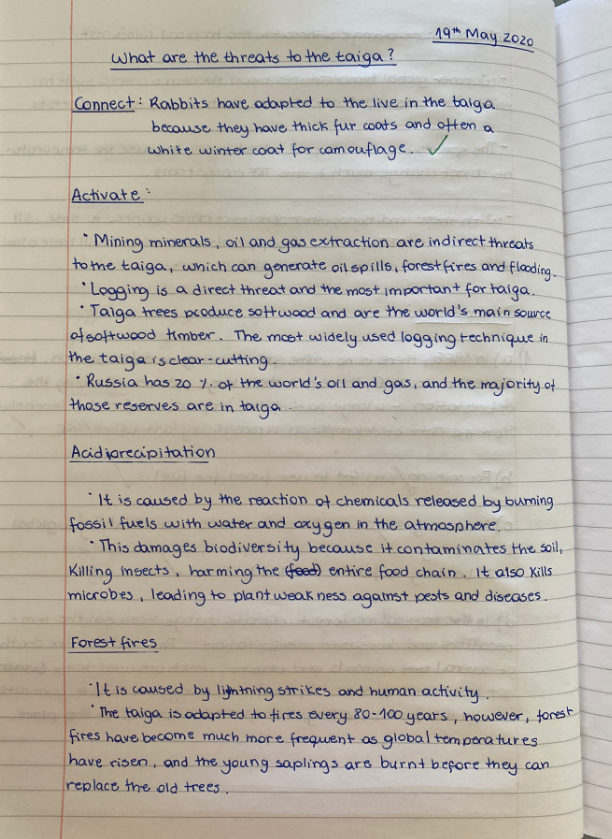 19th May 2020
What are the threats to the taiga?
Connect: Rabbits have adapted to the live in the taiga
because they have thick fur coats and often a
white winter coat for camouflage. ✓
Activate:
• Mining minerals, oil and gas extraction are indirect threats
to the taiga, which can generate oil spills, forest fires and flooding.
• Logging is a direct threat and the most important for taiga.
• Taiga trees produce softwood and are the world's main source
of softwood timber. The most widely used logging technique in
the taiga is clear-cutting.
• Russia has 20 % of the world's oil and gas, and the majority of
those reserves are in taiga.
Acid precipitation
• It is caused by the reaction of chemicals released by burning
fossil fuels with water and oxygen in the atmosphere.
• This damages biodiversity because it contaminates the soil,
killing insects, harming the (food) entire food chain. It also kills
microbes, leading to plant weakness against pests and diseases.
Forest fires
• It is caused by lightning strikes and human activity.
• The taiga is adapted to fires every 80-100 years, however, forest
fires have become much more frequent as global temperatures
have risen, and the young saplings are burnt before they can
replace the old trees.